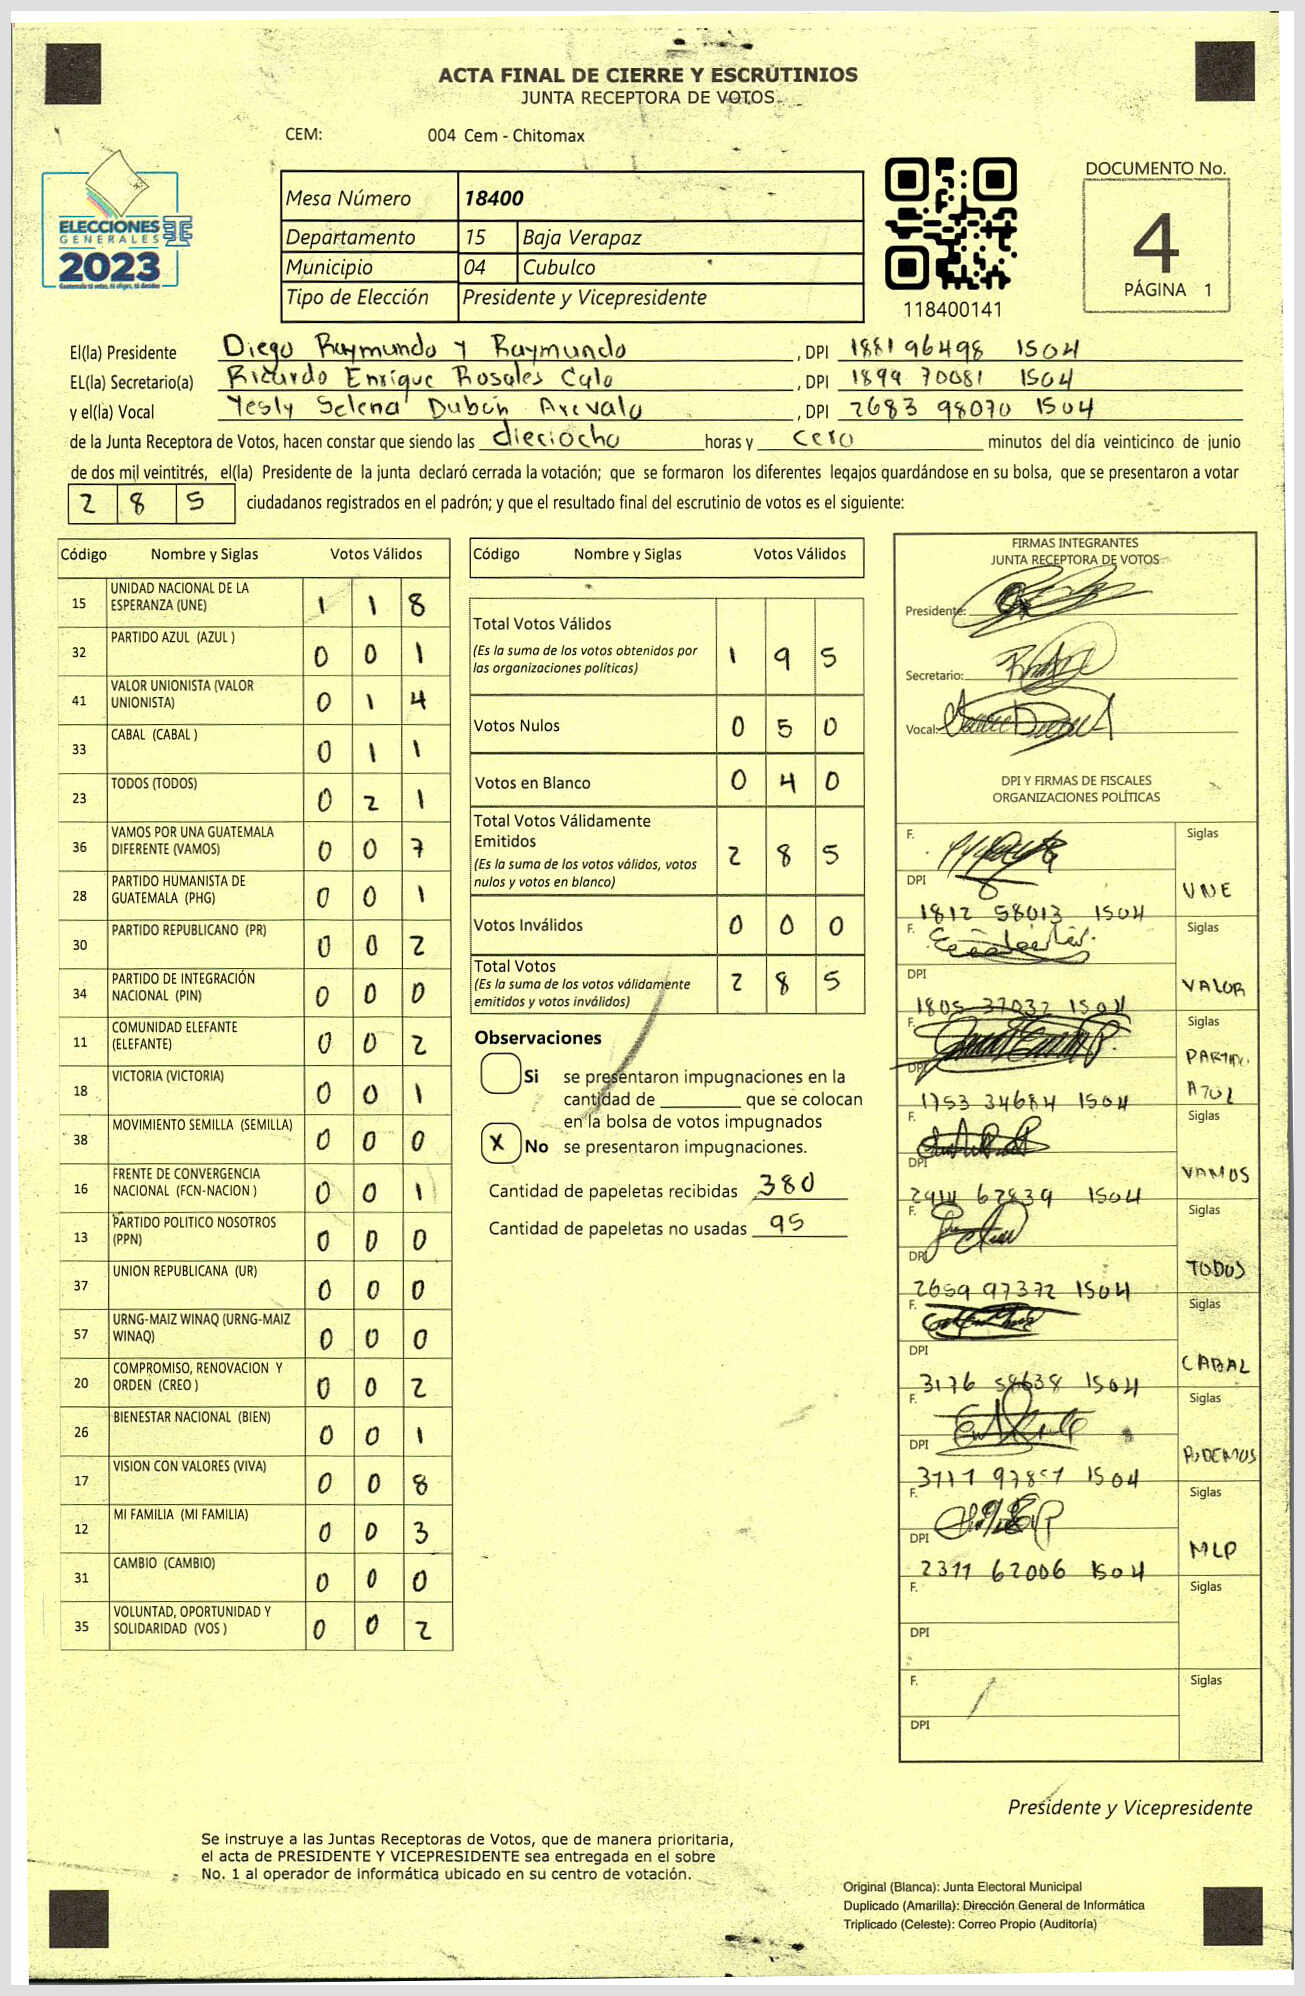 ACTA FINAL DE CIERRE Y ESCRUTINIOS
JUNTA RECEPTORA DE VOTOS
CEM: 004 Cem - Chitomax
ELECCIONES
GENERALES
2023
Guatemala tú votas, tú eliges, tú decides
Mesa Número 18400
Departamento 15 Baja Verapaz
Municipio 04 Cubulco
Tipo de Elección Presidente y Vicepresidente
118400141
DOCUMENTO No.
4
PÁGINA 1
El(la) Presidente Diego Raymundo y Raymundo , DPI 1881 96498 1504
EL(la) Secretario(a) Ricardo Enrique Rosales Calo , DPI 1899 70081 1504
y el(la) Vocal Yesly Selena Dubón Arevalo , DPI 2683 98070 1504
de la Junta Receptora de Votos, hacen constar que siendo las dieciocho horas y cero minutos del día veinticinco de junio
de dos mil veintitrés, el(la) Presidente de la junta declaró cerrada la votación; que se formaron los diferentes legajos guardándose en su bolsa, que se presentaron a votar
2 8 5 ciudadanos registrados en el padrón; y que el resultado final del escrutinio de votos es el siguiente:
Código Nombre y Siglas Votos Válidos
15 UNIDAD NACIONAL DE LA ESPERANZA (UNE) 1 1 8
32 PARTIDO AZUL (AZUL ) 0 0 1
41 VALOR UNIONISTA (VALOR UNIONISTA) 0 1 4
33 CABAL (CABAL ) 0 1 1
23 TODOS (TODOS) 0 2 1
36 VAMOS POR UNA GUATEMALA DIFERENTE (VAMOS) 0 0 7
28 PARTIDO HUMANISTA DE GUATEMALA (PHG) 0 0 1
30 PARTIDO REPUBLICANO (PR) 0 0 2
34 PARTIDO DE INTEGRACIÓN NACIONAL (PIN) 0 0 0
11 COMUNIDAD ELEFANTE (ELEFANTE) 0 0 2
18 VICTORIA (VICTORIA) 0 0 1
38 MOVIMIENTO SEMILLA (SEMILLA) 0 0 0
16 FRENTE DE CONVERGENCIA NACIONAL (FCN-NACION ) 0 0 1
13 PARTIDO POLITICO NOSOTROS (PPN) 0 0 0
37 UNION REPUBLICANA (UR) 0 0 0
57 URNG-MAIZ WINAQ (URNG-MAIZ WINAQ) 0 0 0
20 COMPROMISO, RENOVACION Y ORDEN (CREO ) 0 0 2
26 BIENESTAR NACIONAL (BIEN) 0 0 1
17 VISION CON VALORES (VIVA) 0 0 8
12 MI FAMILIA (MI FAMILIA) 0 0 3
31 CAMBIO (CAMBIO) 0 0 0
35 VOLUNTAD, OPORTUNIDAD Y SOLIDARIDAD (VOS ) 0 0 2
Código Nombre y Siglas Votos Válidos
Total Votos Válidos 1 9 5
(Es la suma de los votos obtenidos por
las organizaciones politicas)
Votos Nulos 0 5 0
Votos en Blanco 0 4 0
Total Votos Válidamente
Emitidos 2 8 5
(Es la suma de los votos válidos, votos
nulos y votos en blanco)
Votos Inválidos 0 0 0
Total Votos 2 8 5
(Es la suma de los votos válidamente
emitidos y votos inválidos)
Observaciones
Si se presentaron impugnaciones en la
cantidad de ________ que se colocan
en la bolsa de votos impugnados
X No se presentaron impugnaciones.
Cantidad de papeletas recibidas 380
Cantidad de papeletas no usadas 95
FIRMAS INTEGRANTES
JUNTA RECEPTORA DE VOTOS
Presidente:
Secretario:
Vocal:
DPI Y FIRMAS DE FISCALES
ORGANIZACIONES POLÍTICAS
F. Siglas
DPI 1812 58013 1504 UNE
F. Siglas
DPI 1805 37032 1504 VALOR
F. Siglas
DPI 1753 34684 1504 PARTIDO AZUL
F. Siglas
DPI 62839 1504 VAMOS
F. Siglas
DPI 2659 97372 1504 TODOS
F. Siglas
DPI 3176 58638 1504 CABAL
F. Siglas
DPI 3177 97857 1504 PODEMOS
F. Siglas
DPI 2377 62006 1504 MLP
F. Siglas
DPI
F. Siglas
DPI
Presidente y Vicepresidente
Se instruye a las Juntas Receptoras de Votos, que de manera prioritaria,
el acta de PRESIDENTE Y VICEPRESIDENTE sea entregada en el sobre
No. 1 al operador de informática ubicado en su centro de votación.
Original (Blanca): Junta Electoral Municipal
Duplicado (Amarilla): Dirección General de Informática
Triplicado (Celeste): Correo Propio (Auditoría)